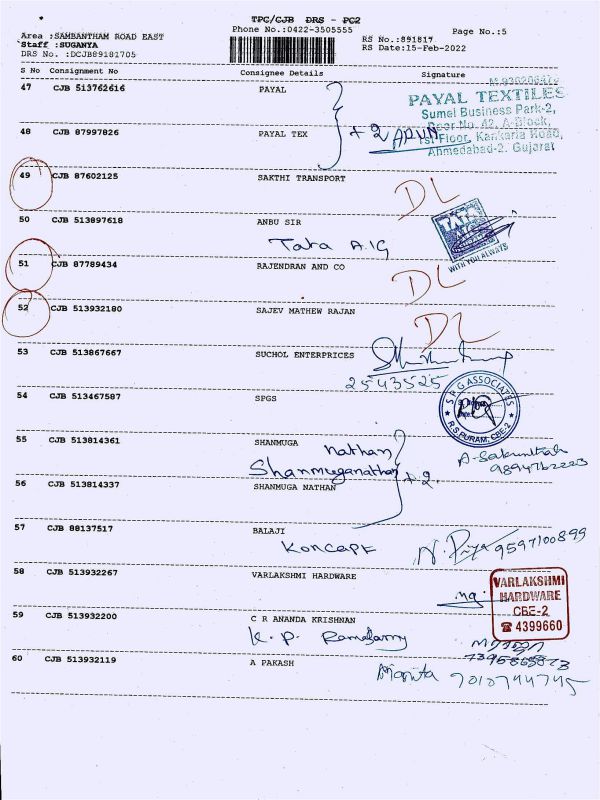 TPC/CJB DRS - PC2
Phone No.:0422-3505555
Page No.:5
Area :SAMBANTHAM ROAD EAST
Staff :SUGANYA
DRS No. :DCJB89181705
RS No.:891817
RS Date:15-Feb-2022
S No Consignment No Consignee Details Signature
47 CJB 513762616 PAYAL
PAYAL TEXTILES
Sumel Business Park-2,
Door No. 42, A-Block,
1st Floor, Kankaria Road,
Ahmedabad-2. Gujarat
48 CJB 87997826 PAYAL TEX
+2 ARUN
49 CJB 87602125 SAKTHI TRANSPORT
DL
50 CJB 513897618 ANBU SIR
Tata A.I.G
TATA
WITH YOU ALWAYS
51 CJB 87789434 RAJENDRAN AND CO
DL
52 CJB 513932180 SAJEV MATHEW RAJAN
DL
53 CJB 513867667 SUCHOL ENTERPRICES
2543525
54 CJB 513467587 SPGS
SPG ASSOCIATES
R.S. PURAM, CBE-2
55 CJB 513814361 SHANMUGA
nathan
Shanmuganathan +2.
56 CJB 513814337 SHANMUGA NATHAN
57 CJB 88137517 BALAJI
Koncept
N. Priya 9597100899
58 CJB 513932267 VARLAKSHMI HARDWARE
VARLAKSHMI
HARDWARE
CBE-2
☎ 4399660
59 CJB 513932200 C R ANANDA KRISHNAN
K. P. Ramasamy
60 CJB 513932119 A PAKASH